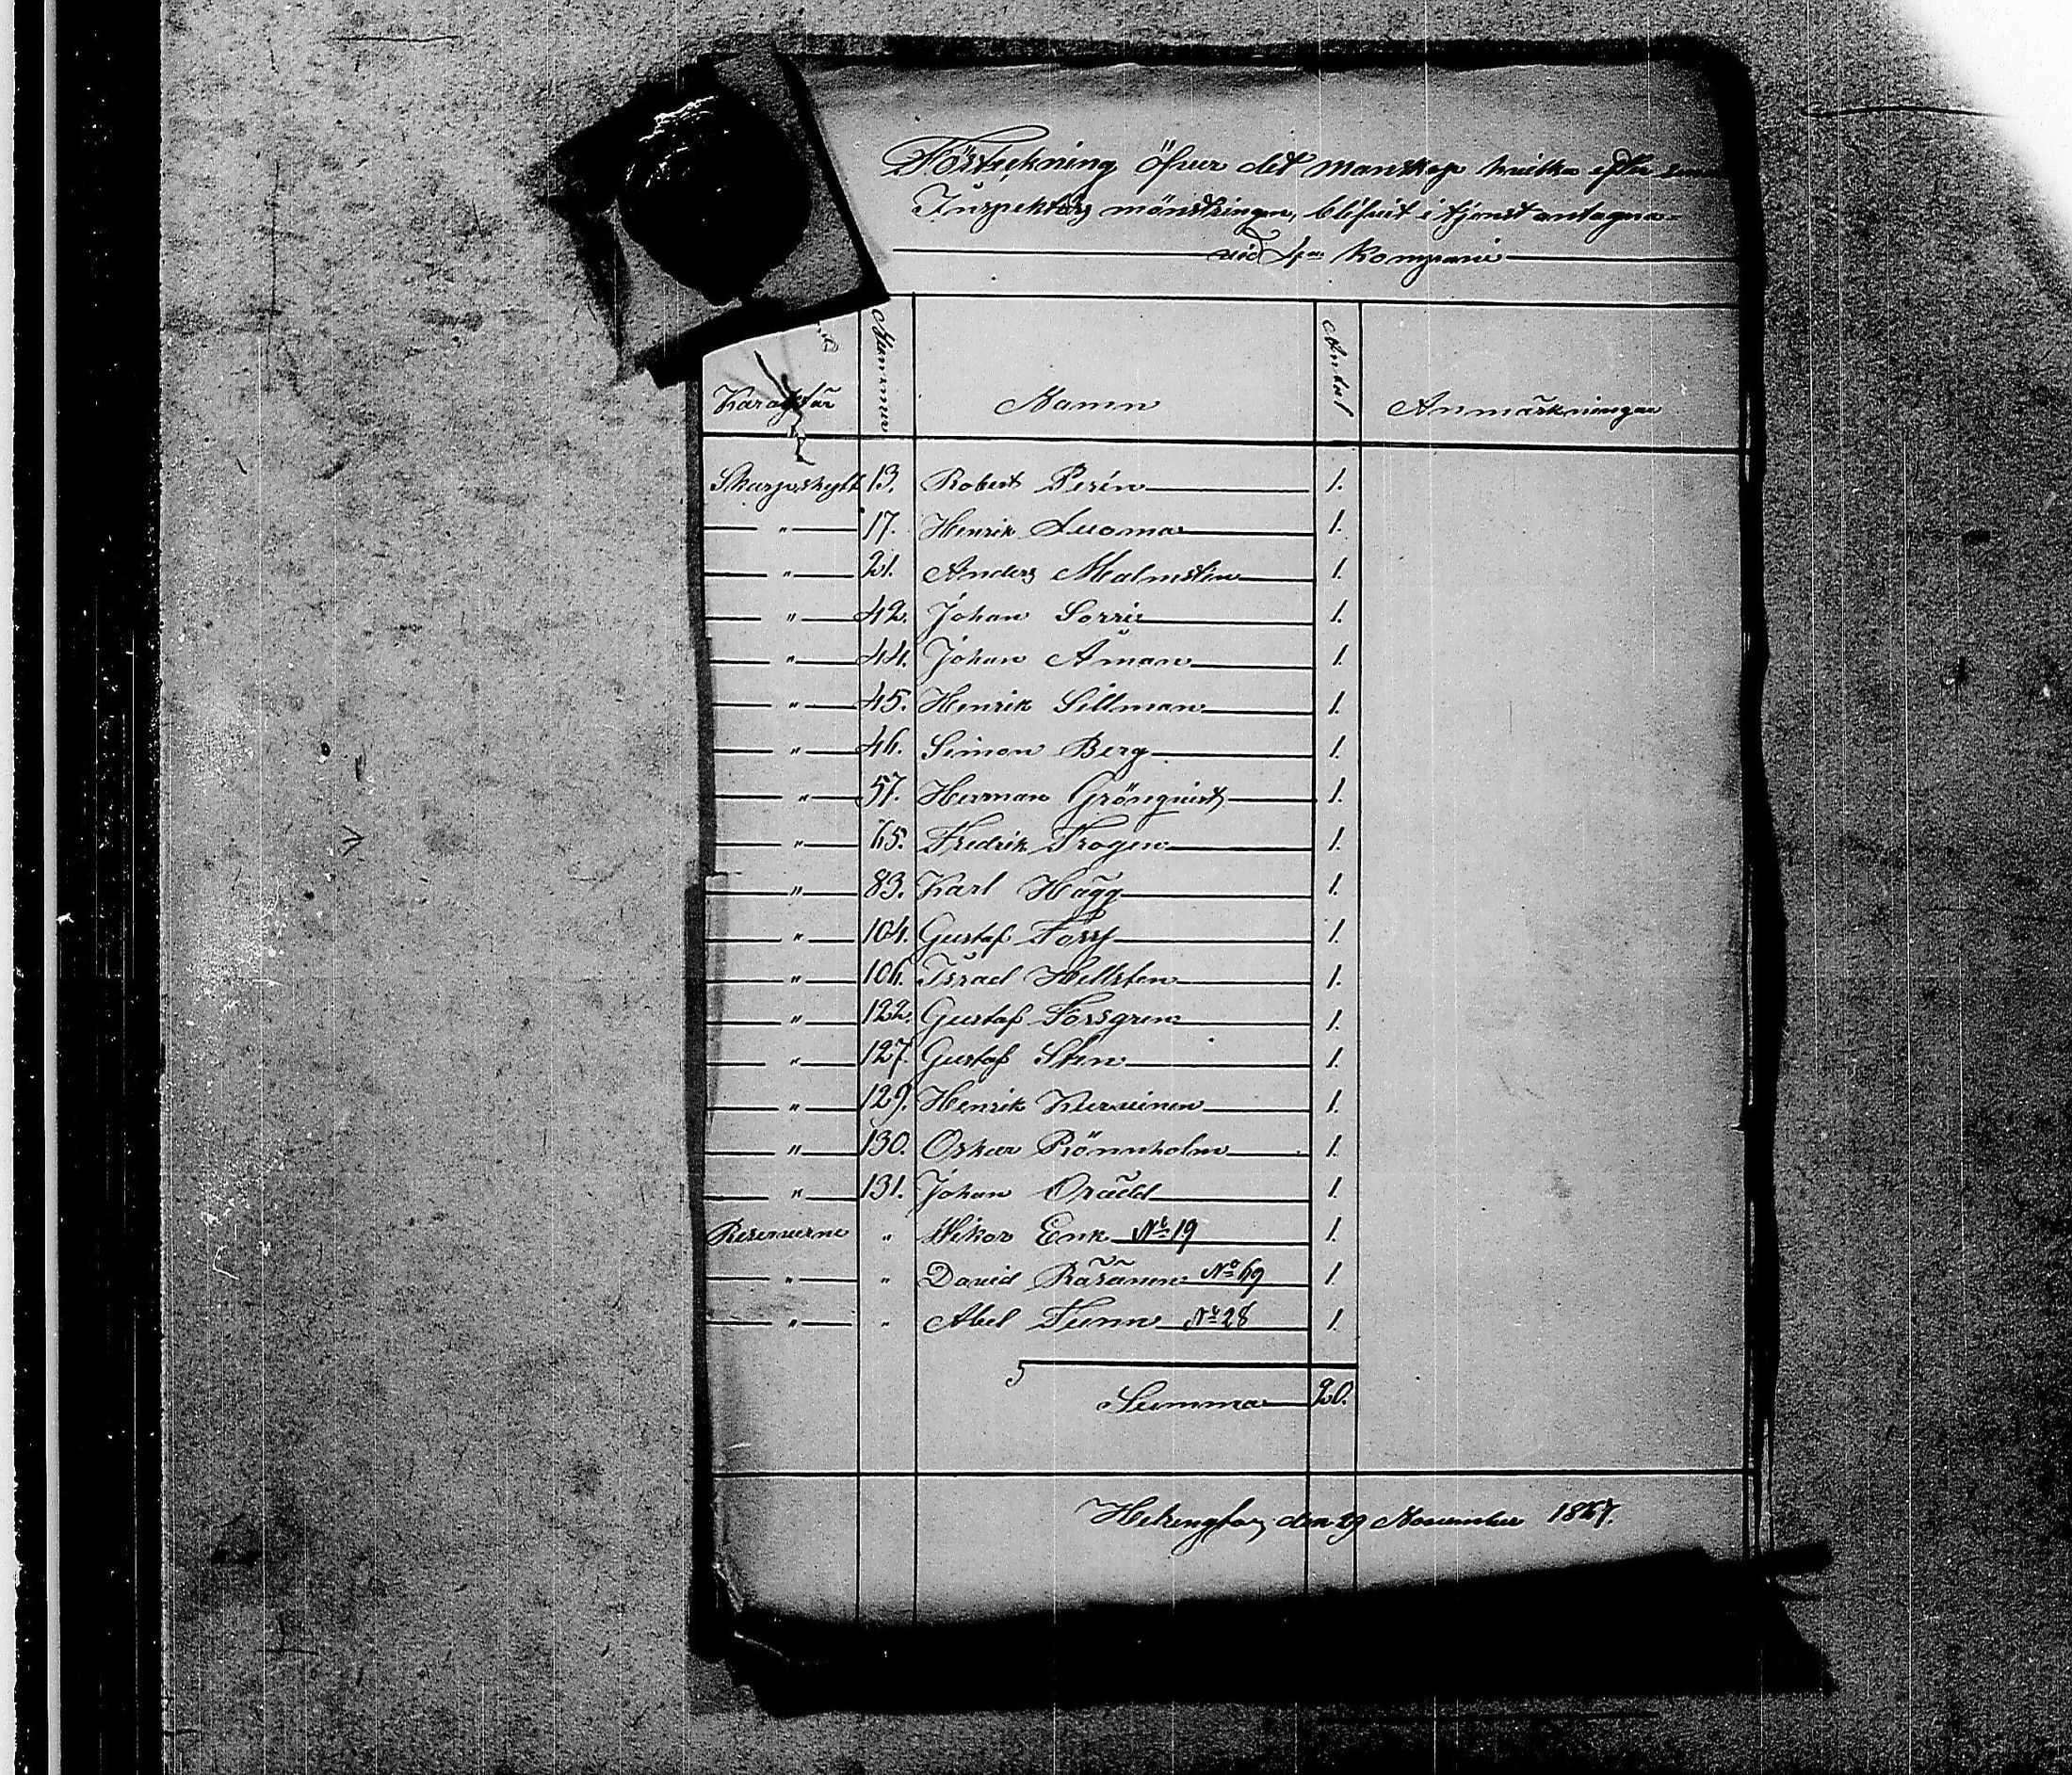 Förteckning öfver det manskap hvilka efter
Inspektörs mönstringen, blifvit i tjenst antagna
vid 4:e Kompani
Karaktär Nummer Namn Antal Anmärkningar
Skarpskytt 13. Robert Perén 1.
" 17. Henrik Luoma 1.
" 21. Anders Malmstén 1.
" 42. Johan Sorri 1.
" 44. Johan Åman 1.
" 45. Henrik Sillman 1.
" 46. Simon Berg 1.
" 57. Herman Grönqvist 1.
" 65. Fredrik Trogen 1.
" 83. Karl Hägg 1.
" 104. Gustaf Forss 1.
" 106. Israel Hellsten 1.
" 122. Gustaf Forsgren 1.
" 127. Gustaf Sten 1.
" 129. Henrik Kurvinen 1.
" 130. Oskar Rönnholm 1.
" 131. Johan Orädd 1.
Reserverne " Wiktor Enk No 19 1.
" " David Räsänen No 69 1.
" " Abel Tunn No 28 1.
Summa 20.
Helsingfors den 29 November 1867.